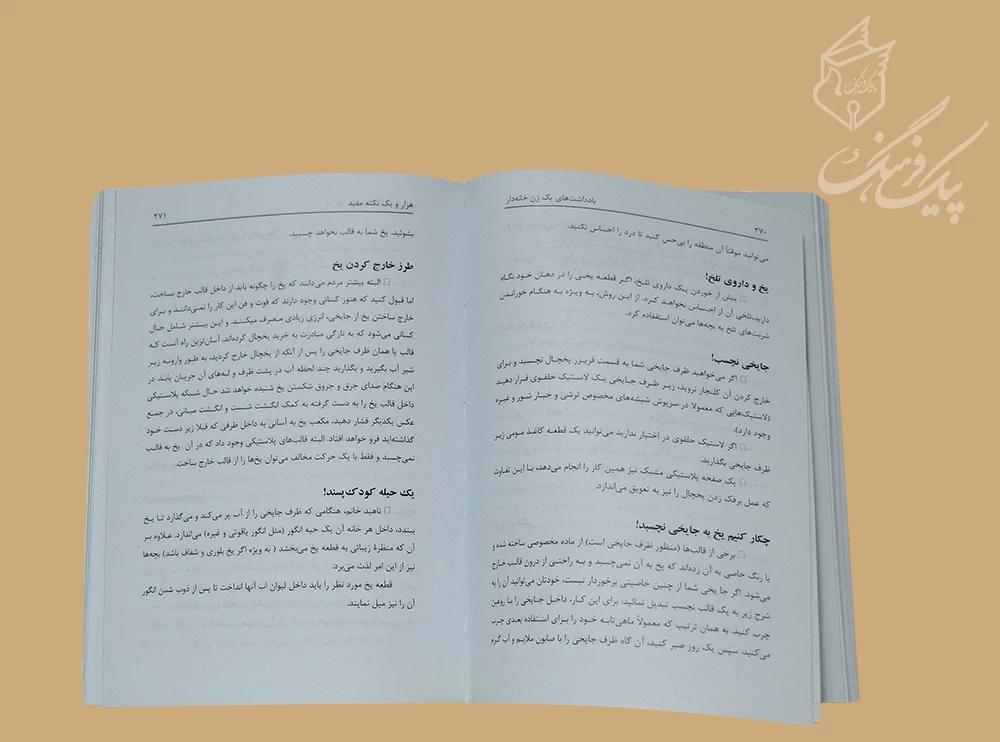 پیک فرهنگ
یادداشت‌های یک زن خانه‌دار
۲۷۰
می‌توانید موقتاً آن منطقه را بی‌حس کنید تا درد را احساس نکنید.
یخ و داروی تلخ!
پیش از خوردن یک داروی تلخ، اگر قطعه یخی را در دهان خود نگاه
دارید، تلخی آن از احساس نخواهد کرد. از این روش، به ویژه به هنگام خوراندن
شربت‌های تلخ به بچه‌ها می‌توان استفاده کرد.
جایخی نچسب!
اگر می‌خواهید ظرف جایخی شما به قسمت فریزر یخچال نچسبد و برای
خارج کردن آن کلنجار نروید، زیر ظرف جایخی یک لاستیک حلقوی قرار دهید
(لاستیک‌هایی که معمولا در سرپوش شیشه‌های مخصوص ترشی و خیار شور و غیره
وجود دارد).
اگر لاستیک حلقوی در اختیار ندارید می‌توانید یک قطعه کاغذ مومی زیر
ظرف جایخی بگذارید.
یک صفحه پلاستیکی مشبک نیز همین کار را انجام می‌دهد، با این تفاوت
که عمل برفک زدن یخچال را نیز به تعویق می‌اندازد.
چکار کنیم یخ به جایخی نچسبد!
برخی از قالب‌ها (منظور ظرف جایخی است) از ماده مخصوصی ساخته شده و
یا رنگ خاصی به آن زده‌اند که یخ به آن نمی‌چسبد و به راحتی از درون قالب خارج
می‌شود. اگر جا یخی شما از چنین خاصیتی برخوردار نیست، خودتان می‌توانید آن را به
شرح زیر به یک قالب نچسب تبدیل نمائید: برای این کار، داخل جایخی را با روغن
چرب کنید. به همان ترتیب که معمولاً ماهی‌تابه خود را برای استفاده بعدی چرب
می‌کنید. سپس یک روز صبر کنید، آن گاه ظرف جایخی را با صابون ملایم و آب گرم
هزار و یک نکته مفید
۲۷۱
بشوئید. یخ شما به قالب نخواهد چسبید.
طرز خارج کردن یخ
البته بیشتر مردم می‌دانند که یخ را چگونه باید از داخل قالب خارج ساخت،
اما قبول کنید که هنوز کسانی وجود دارند که فوت و فن این کار را نمی‌دانند و برای
خارج ساختن یخ از جایخی، انرژی زیادی مصرف میکنند. و این بیشتر شامل حال
کسانی می‌شود که به تازگی مبادرت به خرید یخچال کرده‌اند. آسان‌ترین راه است که
قالب یا همان ظرف جایخی را پس از آنکه از یخچال خارج کردید، به طور وارونه زیر
شیر آب بگیرید و بگذارید چند لحظه آب در پشت ظرف و لبه‌های آن جریان یابد در
این هنگام صدای جرق و جروق شکستن یخ شنیده خواهد شد حال شبکه پلاستیکی
داخل قالب یخ را به دست گرفته به کمک انگشت شست و انگشت میانی، در جمع
عکس یکدیگر فشار دهید، مکعب یخ به آسانی به داخل ظرفی که قبلا زیر دست خود
گذاشته‌اید فرو خواهد افتاد. البته قالب‌های پلاستیکی وجود داد که در آن یخ به قالب
نمی‌چسبد و فقط با یک حرکت مخالف می‌توان یخ‌ها را از قالب خارج ساخت.
یک حیله کودک‌پسند!
ناهید خانم، هنگامی که ظرف جایخی را از آب پر می‌کند و می‌گذارد تا یخ
ببندد، داخل هر خانه آن یک حبه انگور (مثل انگور یاقوتی و غیره) می‌اندازد. علاوه بر
آن که منظرهٔ زیبائی به قطعه یخ می‌بخشد ( به ویژه اگر یخ بلوری و شفاف باشد) بچه‌ها
نیز از این امر لذت می‌برد.
قطعه یخ مورد نظر را باید داخل لیوان اب آنها انداخت تا پس از ذوب شدن انگور
آن را نیز میل نمایند.